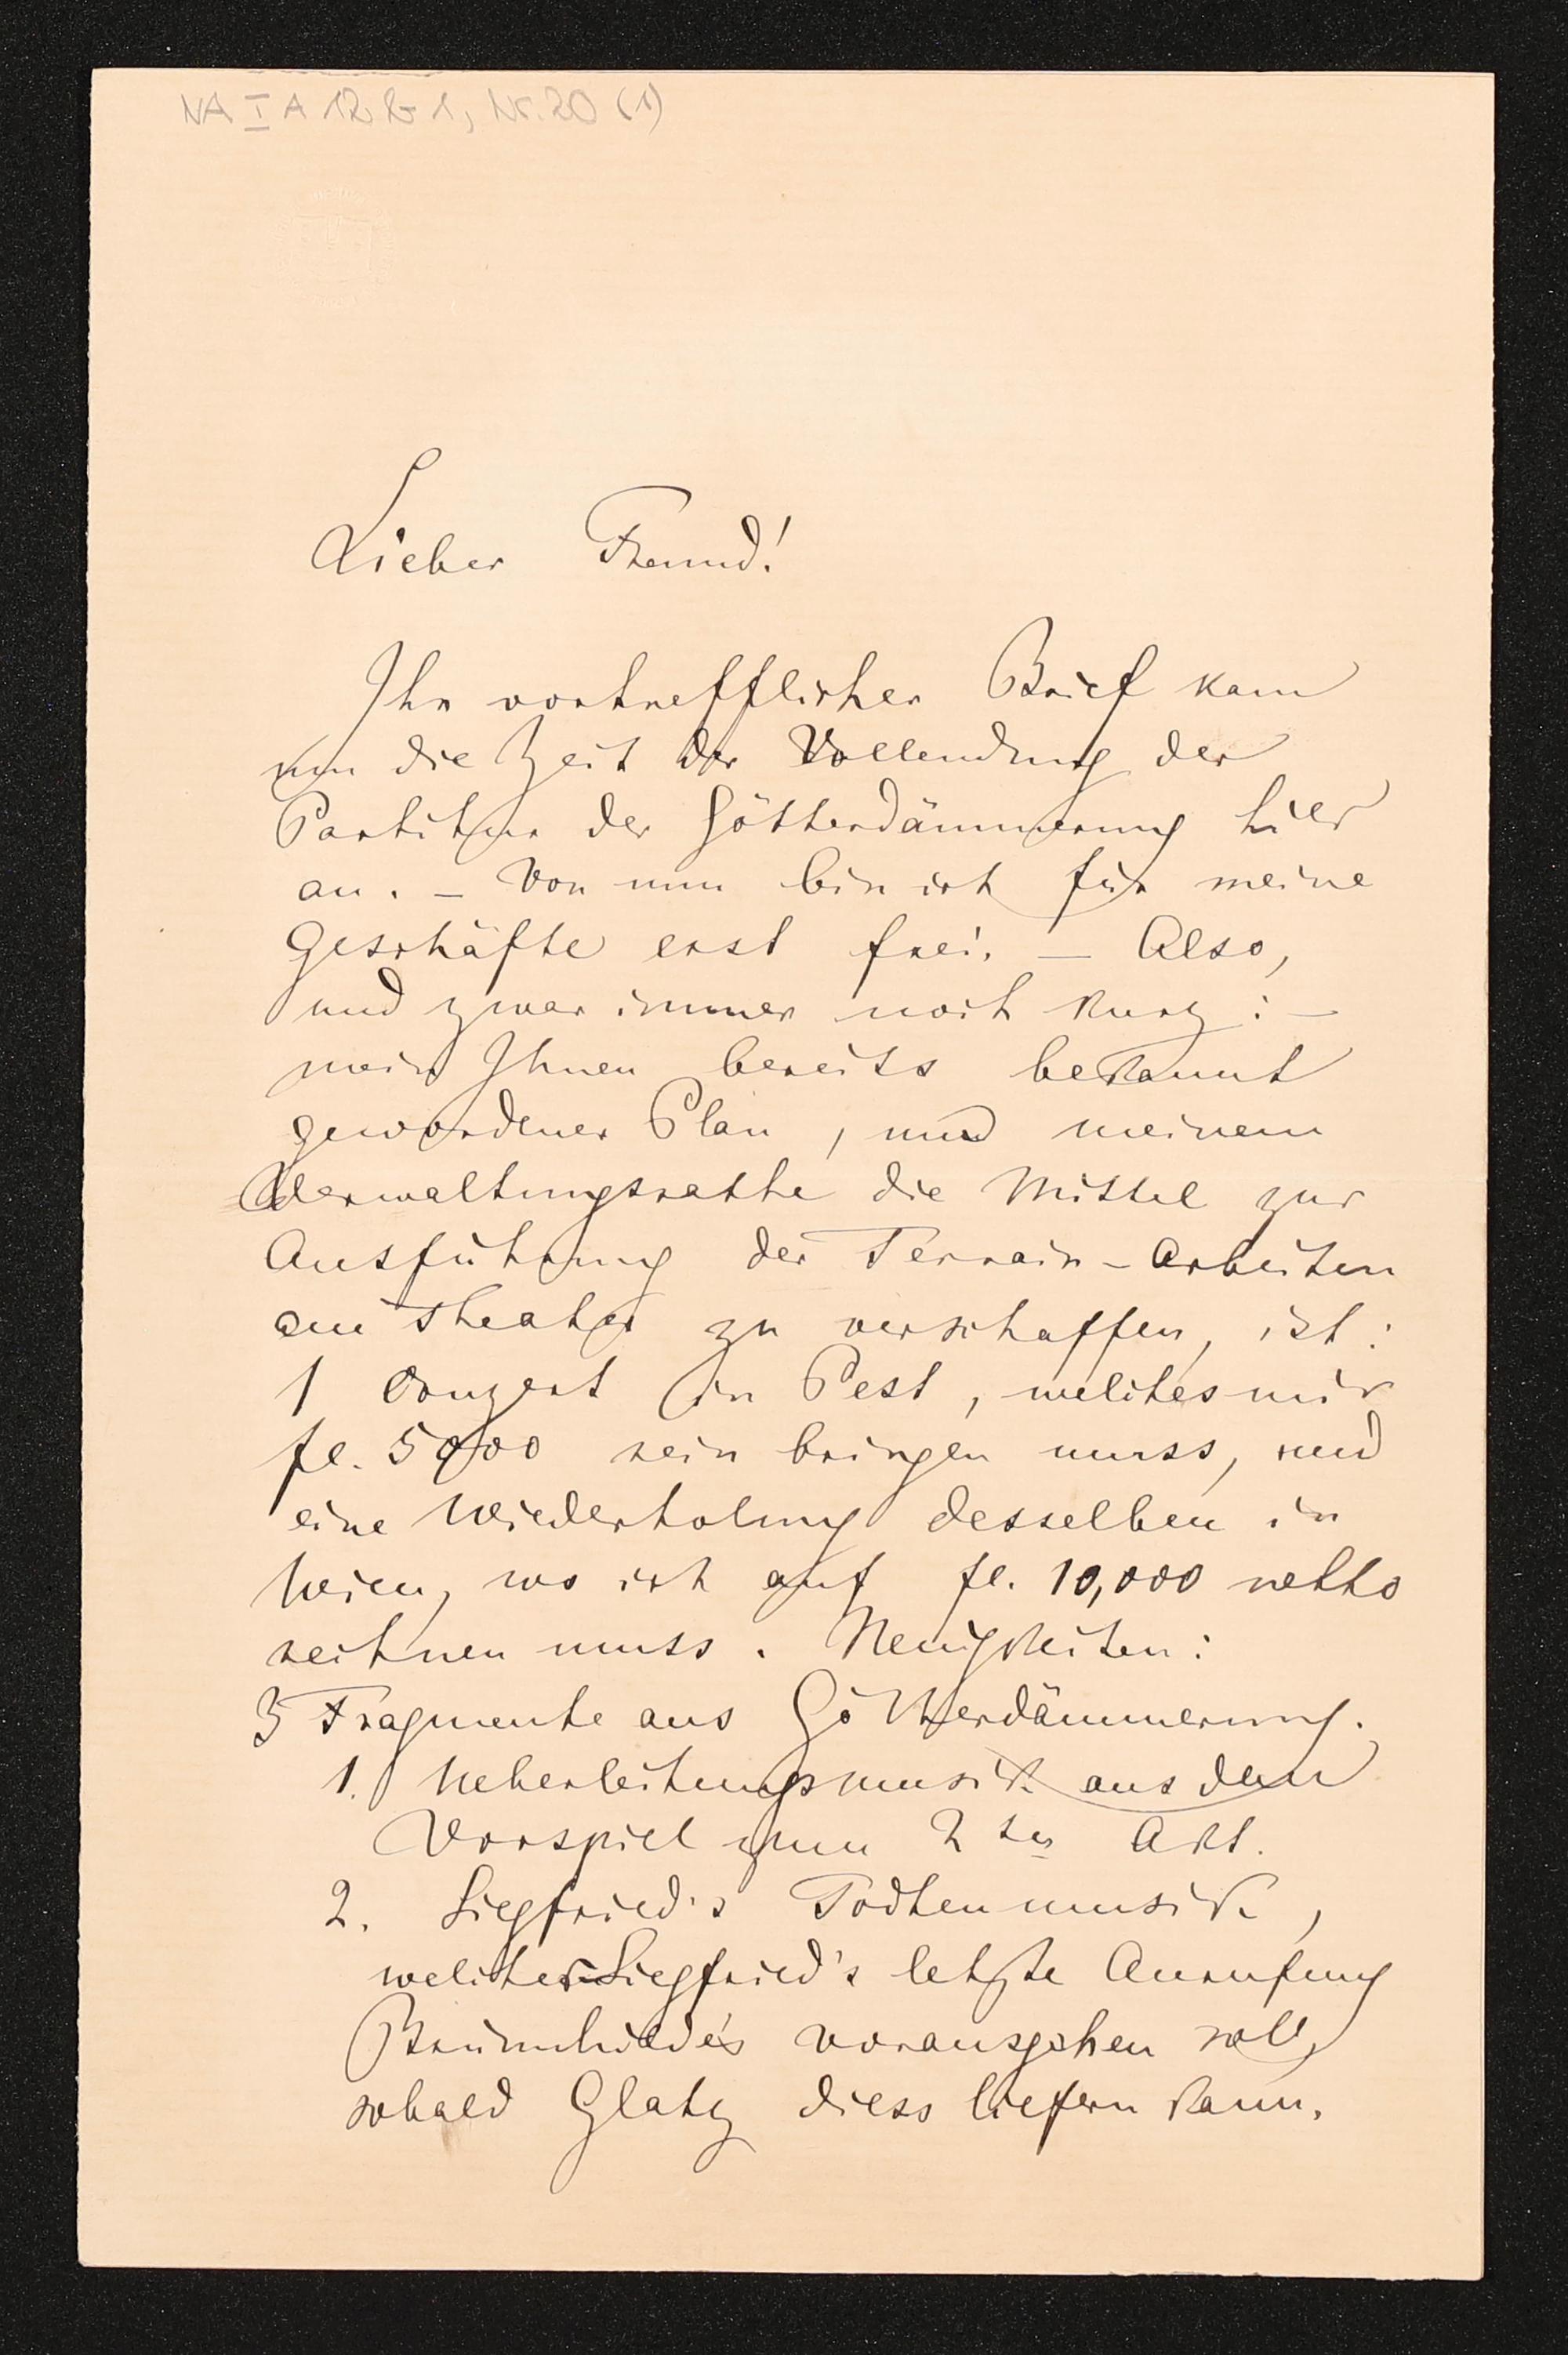 NA I A 12 b-1, Nr. 20 (1)
Lieber Freund!
Ihr vortrefflicher Brief kam
um die Zeit der Vollendung der
Partitur der Götterdämmerung hier
an. – Von nun bin ich für meine
Geschäfte erst frei. – Also,
und zwar immer noch kurz: –
mein Ihnen bereits bekannt
gewordener Plan, um meinem
Verwaltungsrathe die Mittel zur
Ausführung der Terrain-Arbeiten
am Theater zu verschaffen, ist:
1 Conzert in Pest, welches mir
fl. 5000 rein bringen muss, und
eine Wiederholung desselben in
Wien, wo ich auf fl. 10,000 netto
rechnen muss. Neuigkeiten:
3 Fragmente aus Götterdämmerung.
1. Ueberleitungsmusik aus dem
Vorspiel zum 2ten Akt.
2. Siegfried's Todtenmusik,
welcher Siegfried's letzte Anrufung
Brünnhilde's vorausgehen soll,
sobald Glatz diess liefern kann.